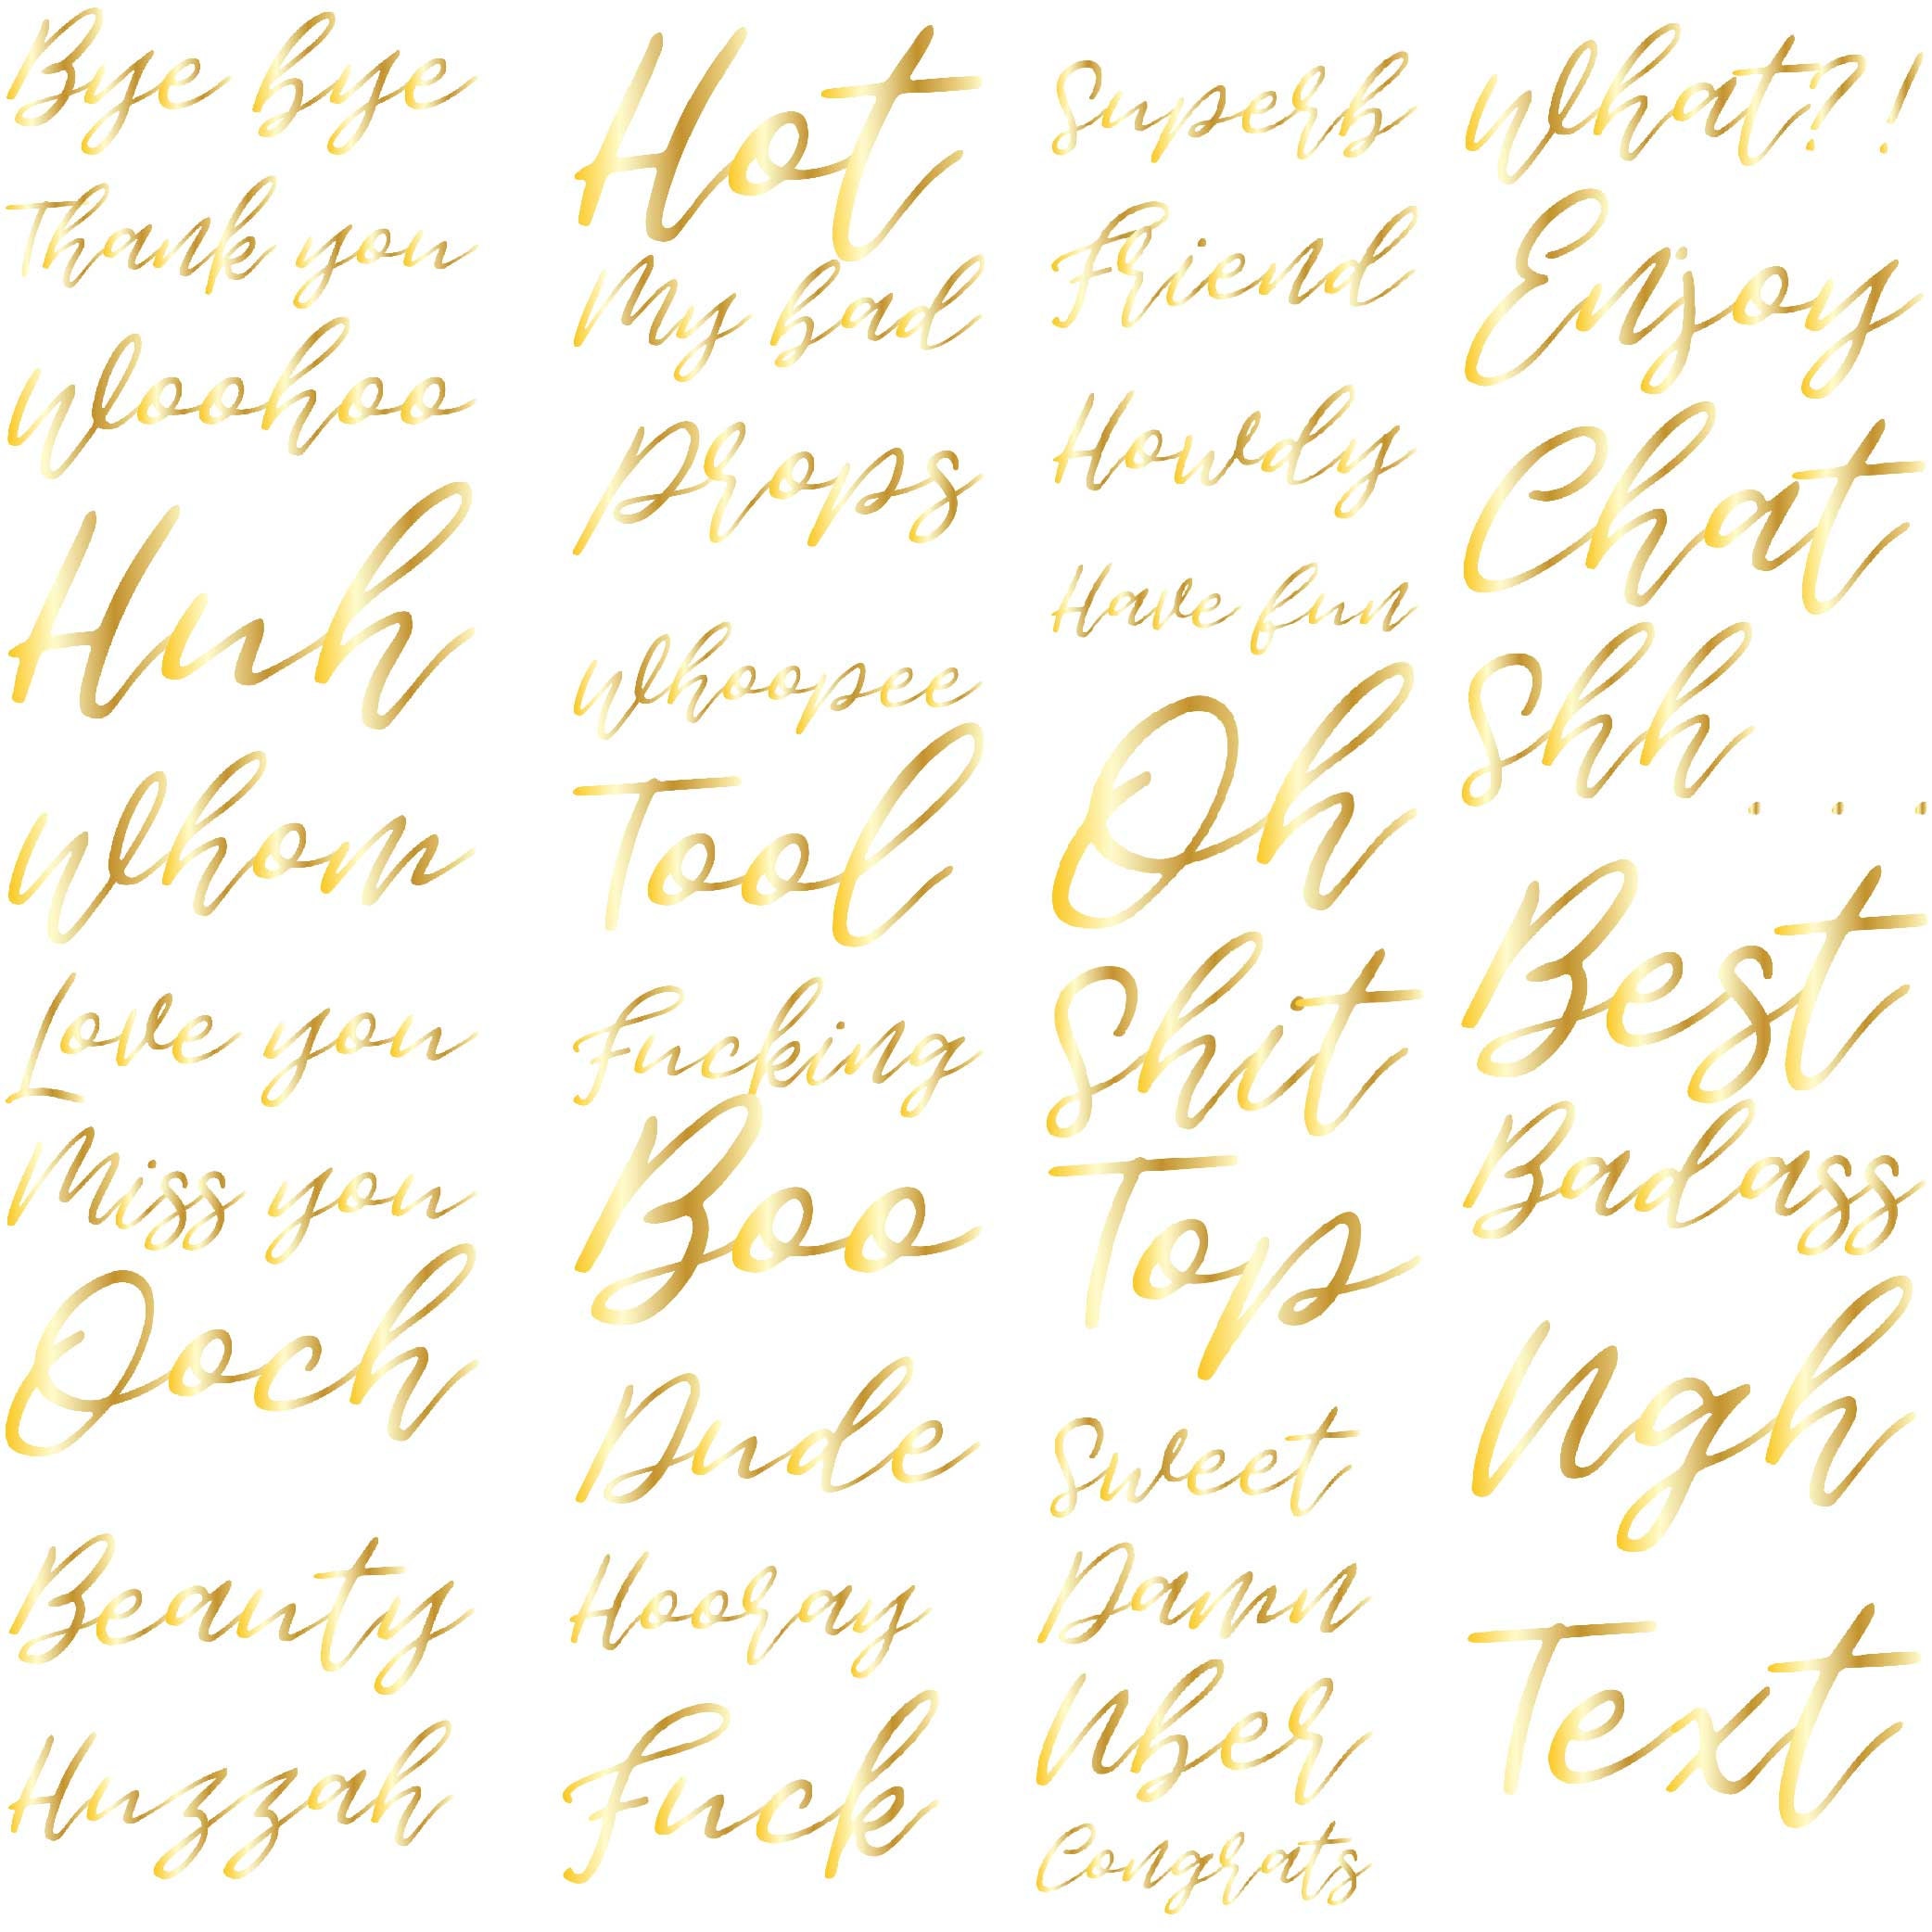 Bye bye
Thank you
Woohoo
Huh
Whom
Love you
Miss you
Ooch
Beauty
Huzzah
Hot
My bad
Props
Whoopee
Tool
Fucking
Boo
Dude
Hooray
Fuck
Superb
Friend
Howdy
Have fun
Oh
Shit
Top
Sweet
Damn
Uber
Congrats
What?!
Enjoy
Chat
Shh...
Best
Badass
Ngh
Text